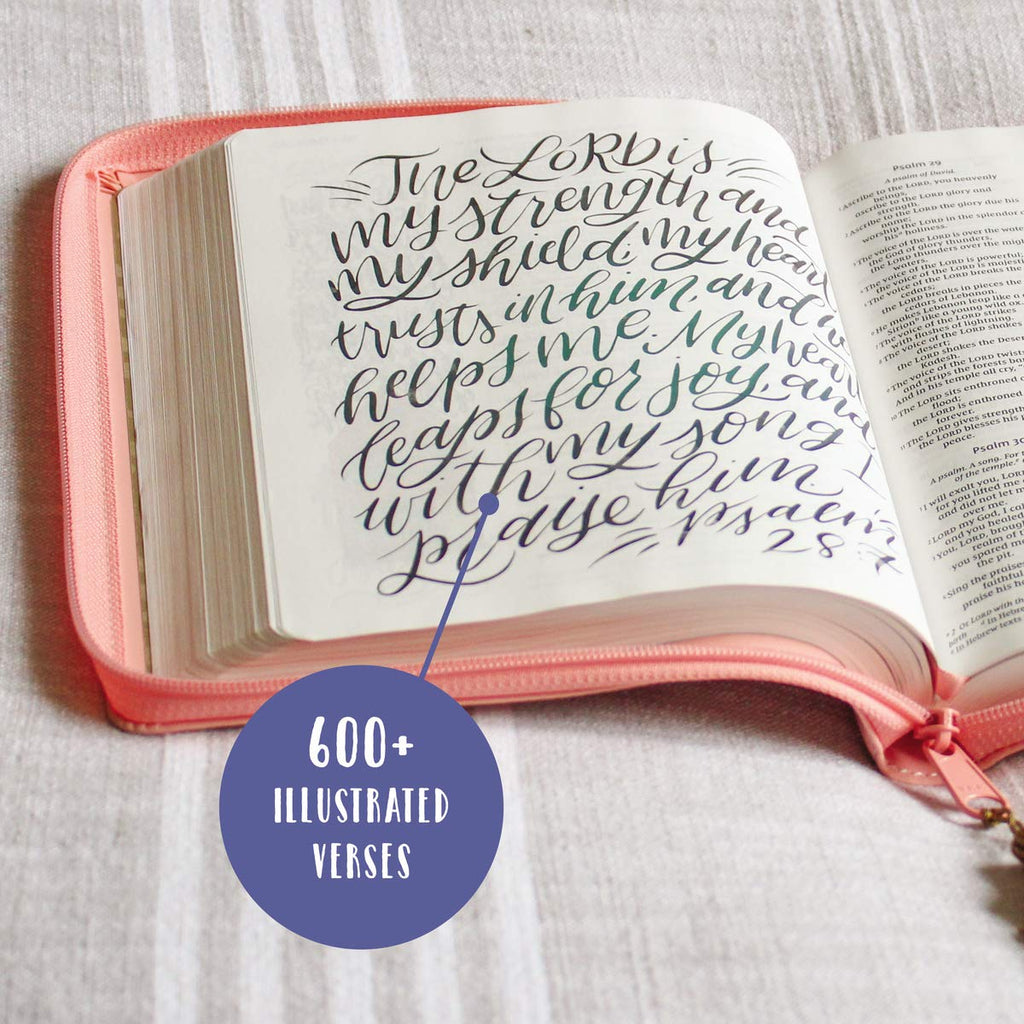 The LORD is
my strength and
my shield; my heart
trusts in him, and he
helps me. My heart
leaps for joy, and
with my song I
praise him.
psalm
28:7
Psalm 29
A psalm of David.
Ascribe to the LORD, you heavenly
beings,
ascribe to the LORD glory and
strength.
Ascribe to the LORD the glory due his
name;
worship the LORD in the splendor
his holiness.
The voice of the LORD is over the
the God of glory thunders,
the LORD thunders over the
waters.
The voice of the LORD is powerful;
the voice of the LORD is
The voice of the LORD breaks the
cedars;
the LORD breaks in pieces the
cedars of Lebanon.
He makes Lebanon leap like a
Sirion like a young wild ox.
The voice of the LORD strikes
with flashes of lightning.
The voice of the LORD shakes
desert;
the LORD shakes the Desert
Kadesh.
The voice of the LORD
and strips the forests
And in his temple all cry,
The LORD sits enthroned
flood;
the LORD is enthroned
forever.
The LORD gives strength
the LORD blesses his
peace.
Psalm 30
A psalm. A song. For
of the temple.
I will exalt you, LORD
for you lifted me
and did not let
over me.
LORD my God, I
and you healed
You, LORD, brought
realm of
you spared
the pit.
Sing the praises
faithful
praise his
Or LORD with the
In Hebrew
In Hebrew texts
600+
ILLUSTRATED
VERSES